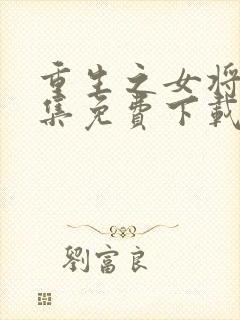 重生之女将
集免费下载
劉富良